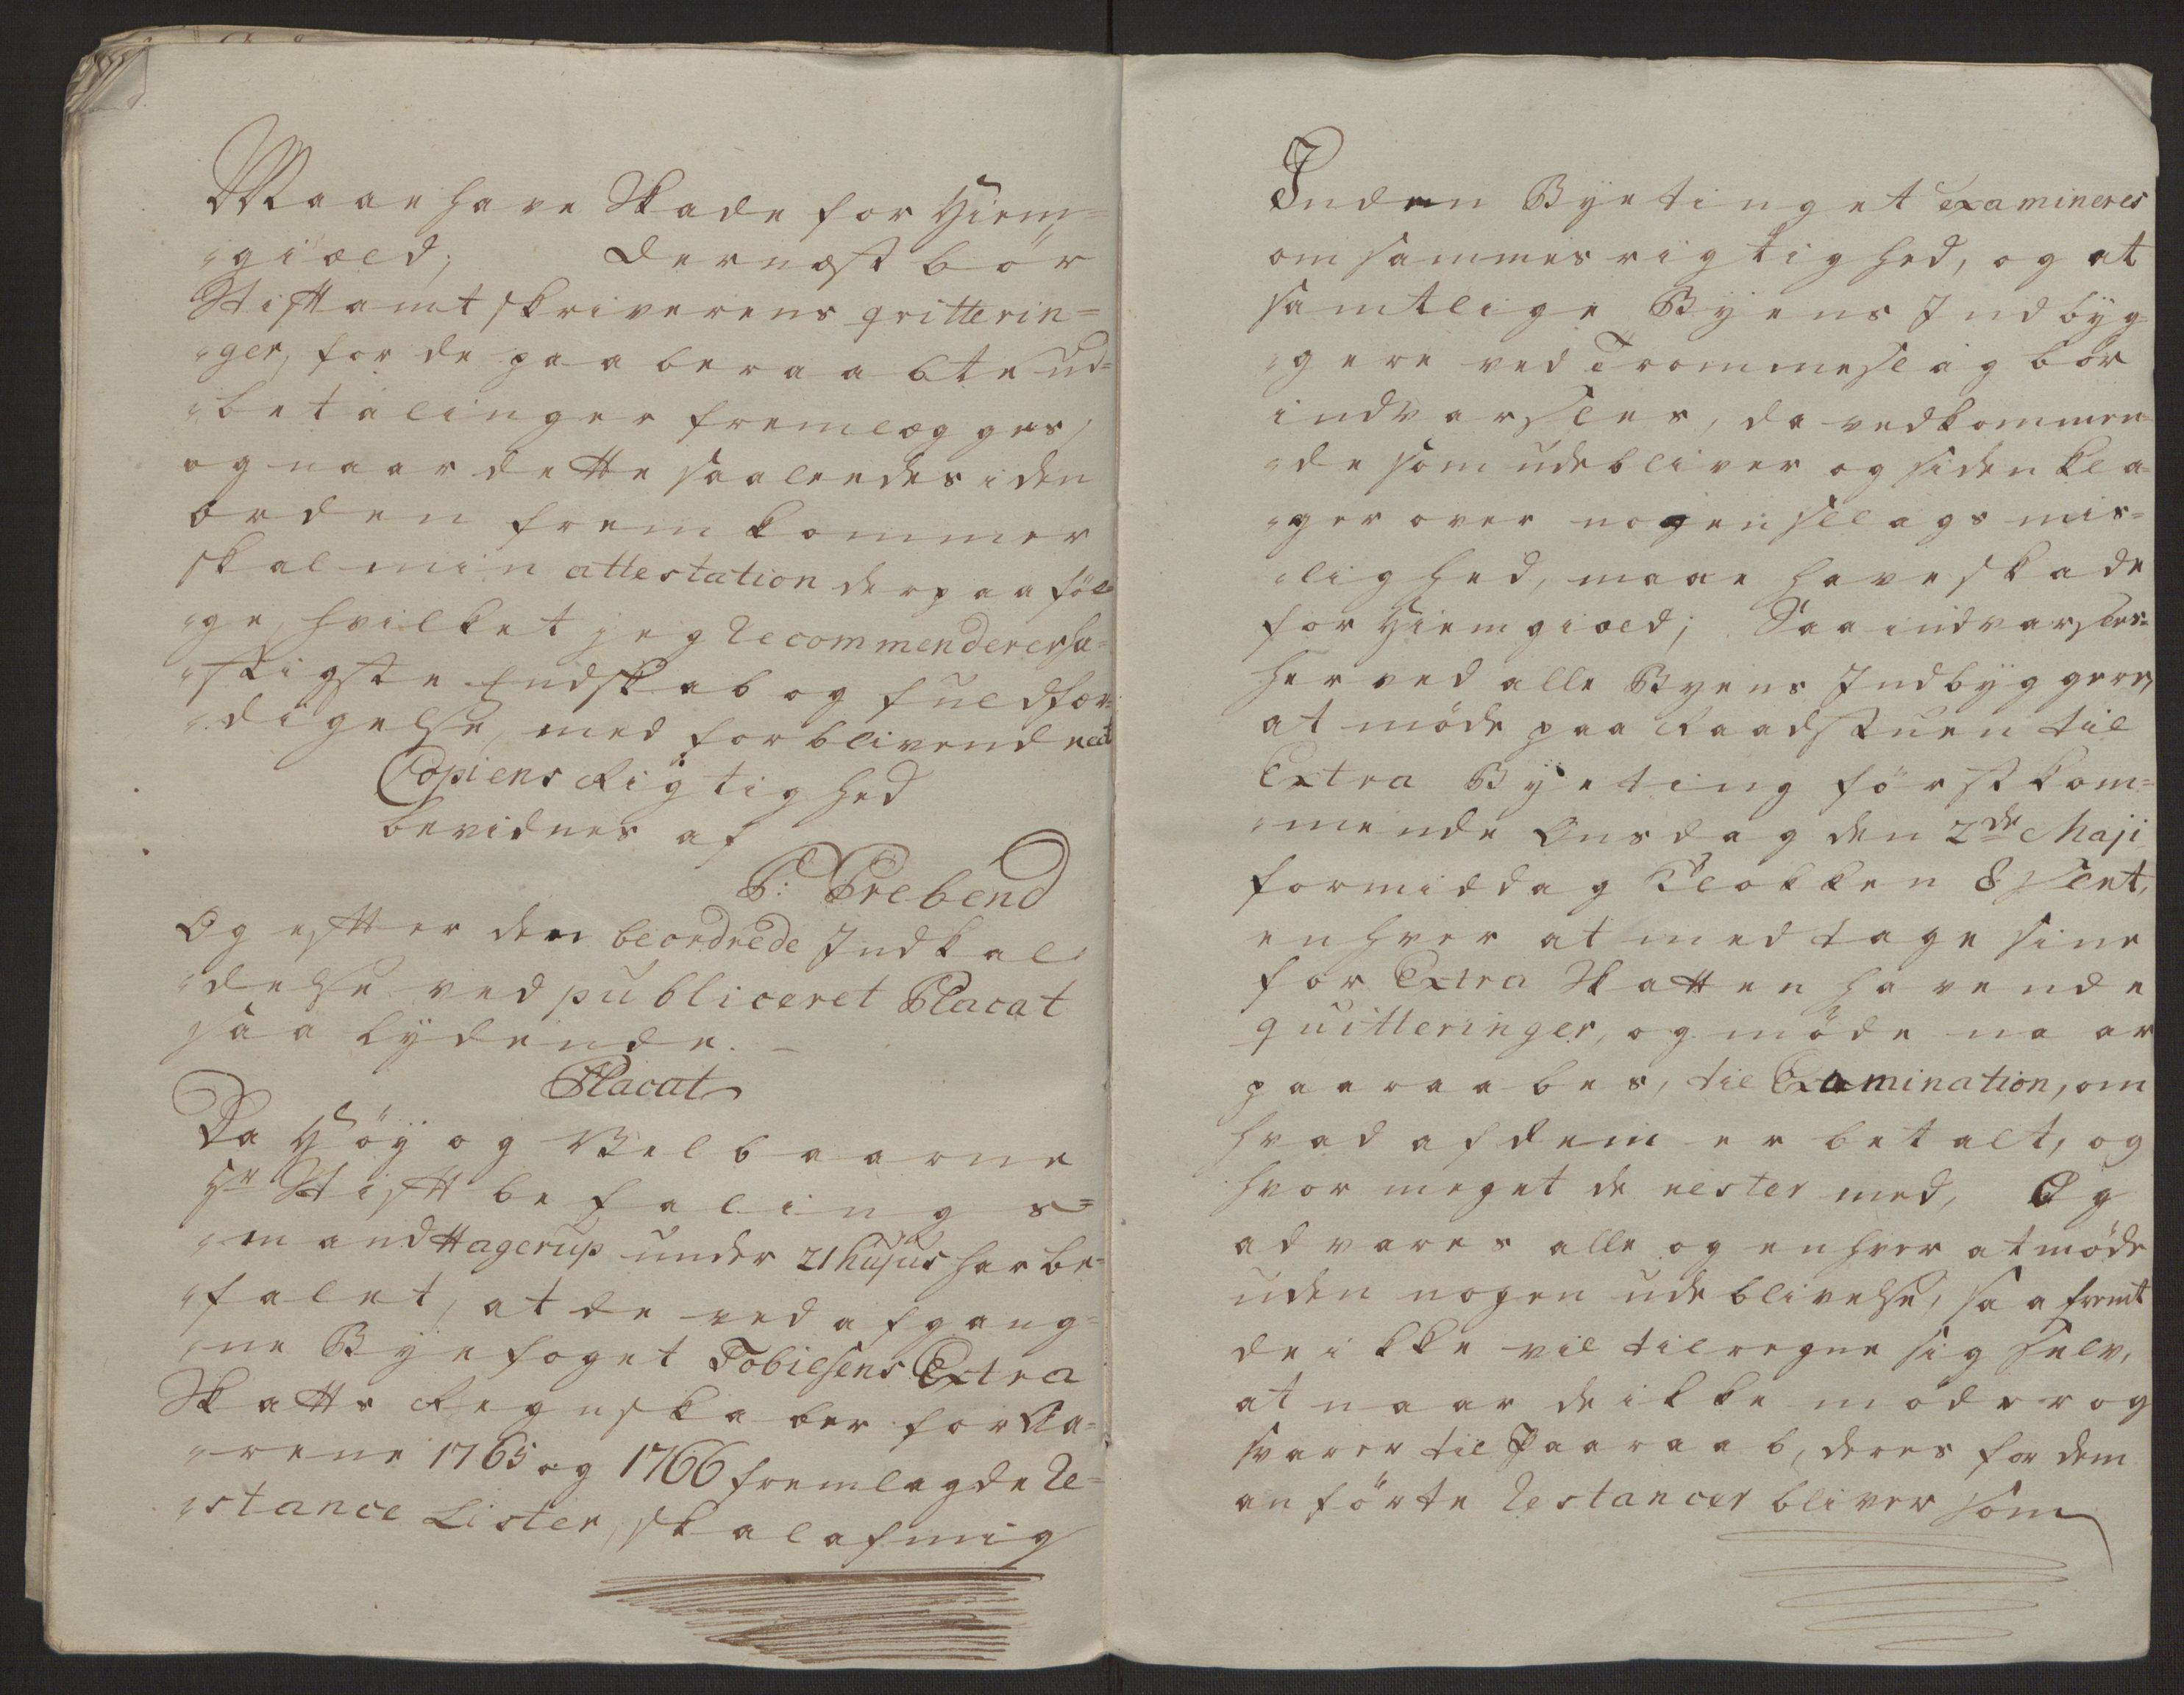 Maae have Skade for Hiem¬
„giæld; Dernæst bör
Stiftamtskriverens qvitterin=
„ger, for de paaberaabte ud=
„betalinger fremlægges,
og naar dette saaledes i den
orden fremkommer
skal min attestation derpaa föl
„ge, hvilket jeg Recommenderer ha=
„stigste Endskab og fuldfær=
„digelse, med forblivende etc
Copiens Rigtighed
bevidnes af
P: Prebend
Og efter den beordrede Indkal
„delse ved publiceret Placat
saa lydende. –
Placat
Da Höy og Velbaarne
Hr Stiftbefalings=
„mand Hagerup under 21 hujus har be=
„falet, at de ved afgang=
„ne Byefoget Tobiesens Extra
Skatts Regnskaber for Aa=
„rene 1765 og 1766 fremlagde Re=
„stance Lister, skal af mig
Inden Byetinget examineres
om sammes rigtighed, og at
samtlige Byens Indbyg=
„gere ved Trommeslag bör
indvarsles, da vedkommen=
„de som udebliver og siden kla=
„ger over nogenslags mis=
„lighed, maae have skade
for Hiemgiæld; Saa indvarsles
herved alle Byens Indbyggere,
at möde paa Raadstuen til
Extra Byeting först kom=
„mende Onsdag den 2de Maji
formiddag Klokken 8 Slet,
enhver at medtage sine
for Extra Skatten havende
quitteringer, og möde naar
paaraabes, til Examination, om
hvad af dem er betalt, og
hvor meget de rester med, Og
advares alle og enhver at möde
uden nogen udeblivelse, saafremt
de ikke vil tilregne sig selv,
at naar de ikke möder og
svarer til Paaraab, deres for dem
anförte Restancer bliver som